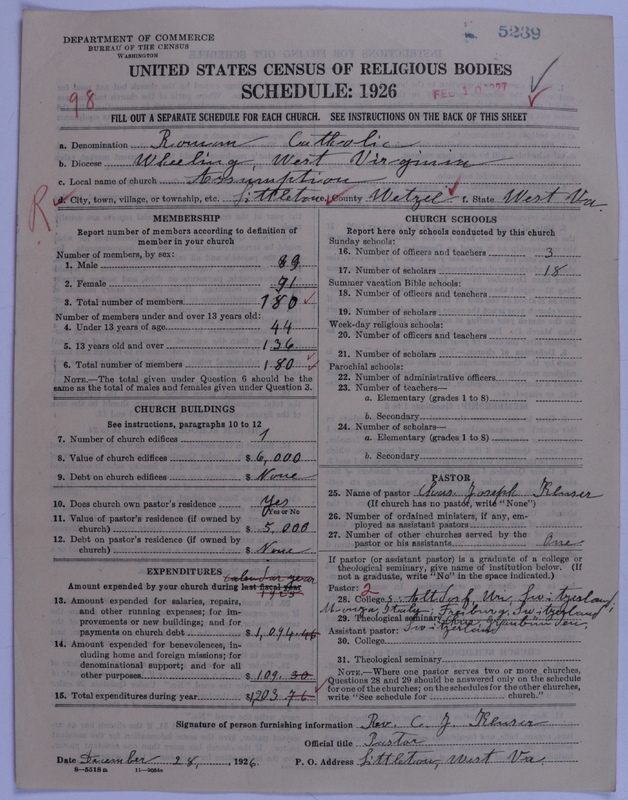 DEPARTMENT OF COMMERCE
BUREAU OF THE CENSUS
WASHINGTON
5239
UNITED STATES CENSUS OF RELIGIOUS BODIES
SCHEDULE: 1926
98
FILL OUT A SEPARATE SCHEDULE FOR EACH CHURCH. SEE INSTRUCTIONS ON THE BACK OF THIS SHEET
a. Denomination Roman Catholic
b. Diocese Wheeling, West Virginia
c. Local name of church Assumption
R
d. City, town, village, or township, etc. Littleton County Wetzel f. State West Va.
MEMBERSHIP
Report number of members according to definition of
member in your church
Number of members, by sex:
1. Male 89
2. Female 91
3. Total number of members 180
Number of members under and over 13 years old:
4. Under 13 years of age 44
5. 13 years old and over 136
6. Total number of members 180
NOTE.—The total given under Question 6 should be
same as the total of males and females given under Question 3.
CHURCH BUILDINGS
See instructions, paragraphs 10 to 12
7. Number of church edifices 1
8. Value of church edifices $ 6,000
9. Debt on church edifices $ None
10. Does church own pastor's residence Yes
Yes or No
11. Value of pastor's residence (if owned by
church) $ 5,000
12. Debt on pastor's residence (if owned by
church) $ None
EXPENDITURES calendar year
Amount expended by your church during last fiscal year
1925
13. Amount expended for salaries, repairs,
and other running expenses; for im-
provements or new buildings; and for
payments on church debt $ 1,094.46
14. Amount expended for benevolences, in-
cluding home and foreign missions; for
denominational support; and for all
other purposes $ 109.30
15. Total expenditures during year $ 1203 76
CHURCH SCHOOLS
Report here only schools conducted by this church
Sunday schools:
16. Number of officers and teachers 3
17. Number of scholars 18
Summer vacation Bible schools:
18. Number of officers and teachers
19. Number of scholars
Week-day religious schools:
20. Number of officers and teachers
21. Number of scholars
Parochial schools:
22. Number of administrative officers
23. Number of teachers—
a. Elementary (grades 1 to 8)
b. Secondary
24. Number of scholars—
a. Elementary (grades 1 to 8)
b. Secondary
PASTOR
25. Name of pastor Joseph
(If church has no pastor, write "None")
26. Number of ordained ministers, if any, em-
ployed as assistant pastors
27. Number of other churches served by the
pastor or his assistants One
If pastor (or assistant pastor) is a graduate of a college or
theological seminary, give name of institution below. (If
not a graduate, write "No" in the space indicated.)
Pastor: 2
28. College Altdorf, Switzerland;
Monza Italy; Freiburg, Switzerland
29. Theological seminary Chur
Assistant pastor: Switzerland
30. College
31. Theological seminary
NOTE.—Where one pastor serves two or more churches,
Questions 28 and 29 should be answered only on the schedule
for one of the churches; on the schedules for the other churches,
write "See schedule for church."
Signature of person furnishing information Rev. C. J.
Official title Pastor
Date December 28, 1926. P. O. Address Littleton, West Va.
8—5518a